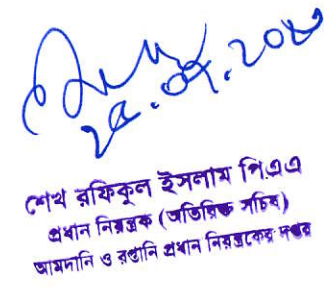 শেখ রফিকুল ইসলাম পিএএ
প্রধান নিয়ন্ত্রক (অতিরিক্ত সচিব)
আমদানি ও রপ্তানি প্রধান নিয়ন্ত্রকের দপ্তর